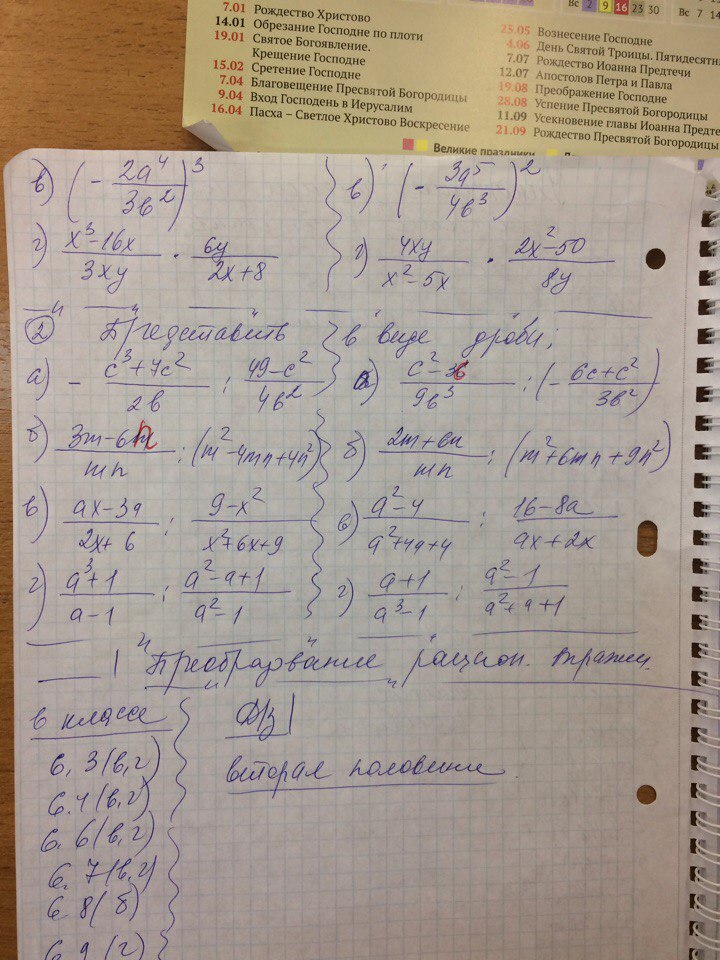 7.01 Рождество Христово
14.01 Обрезание Господне по плоти
19.01 Святое Богоявление.
Крещение Господне
15.02 Сретение Господне
7.04 Благовещение Пресвятой Богородицы
9.04 Вход Господень в Иерусалим
16.04 Пасха – Светлое Христово Воскресение
Вс 2 9 16 23 30
Вс 7 14
25.05 Вознесение Господне
4.06 День Святой Троицы. Пятидесятн
7.07 Рождество Иоанна Предтечи
12.07 Апостолов Петра и Павла
19.08 Преображение Господне
28.08 Успение Пресвятой Богородицы
11.09 Усекновение главы Иоанна Предте
21.09 Рождество Пресвятой Богородицы
Великие праздники
в) (- 2a⁴/3в²)³ в) (- 3a⁵/4в³)²
г) x³-16x/3xy · 6y/2x+8 г) 4xy/x²-5x · 2x²-50/8y
② "Представить в виде дроби;
а) - c³+7c²/2в : 49-c²/4в² а) c²-3c/9в³ : (- 6c+c²/3в²)
б) 3m-6n/mn : (m²-4mn+4n²) б) 2m+6n/mn : (m²+6mn+9n²)
в) ax-3a/2x+6 : 9-x²/x²+6x+9 в) a²-4/a²+4a+4 : 16-8a/ax+2x
г) a³+1/a-1 : a²-a+1/a²-1 г) a+1/a³-1 : a²-1/a²+a+1
"Преобразование рацион. выражен.
в классе
6.3(в,г)
6.4(в,г)
6.6(в,г)
6.7(в,г)
6.8(б)
6.9(г)
Д/з
вторая половина